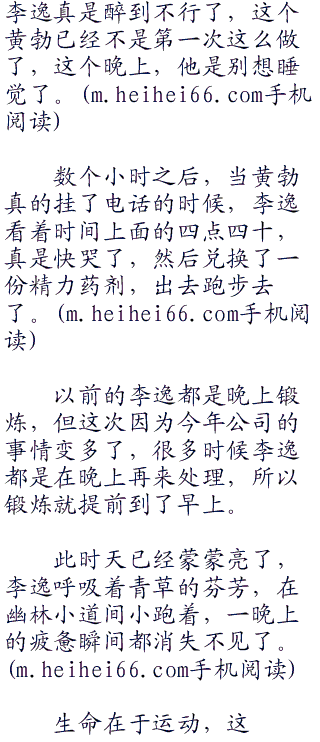 李逸真是醉到不行了，这个
黄勃已经不是第一次这么做
了，这个晚上，他是别想睡
觉了。(m.heihei66.com手机
阅读)
数个小时之后，当黄勃
真的挂了电话的时候，李逸
看着时间上面的四点四十，
真是快哭了，然后兑换了一
份精力药剂，出去跑步去
了。(m.heihei66.com手机阅
读)
以前的李逸都是晚上锻
炼，但这次因为今年公司的
事情变多了，很多时候李逸
都是在晚上再来处理，所以
锻炼就提前到了早上。
此时天已经蒙蒙亮了，
李逸呼吸着青草的芬芳，在
幽林小道间小跑着，一晚上
的疲惫瞬间都消失不见了。
(m.heihei66.com手机阅读)
生命在于运动，这